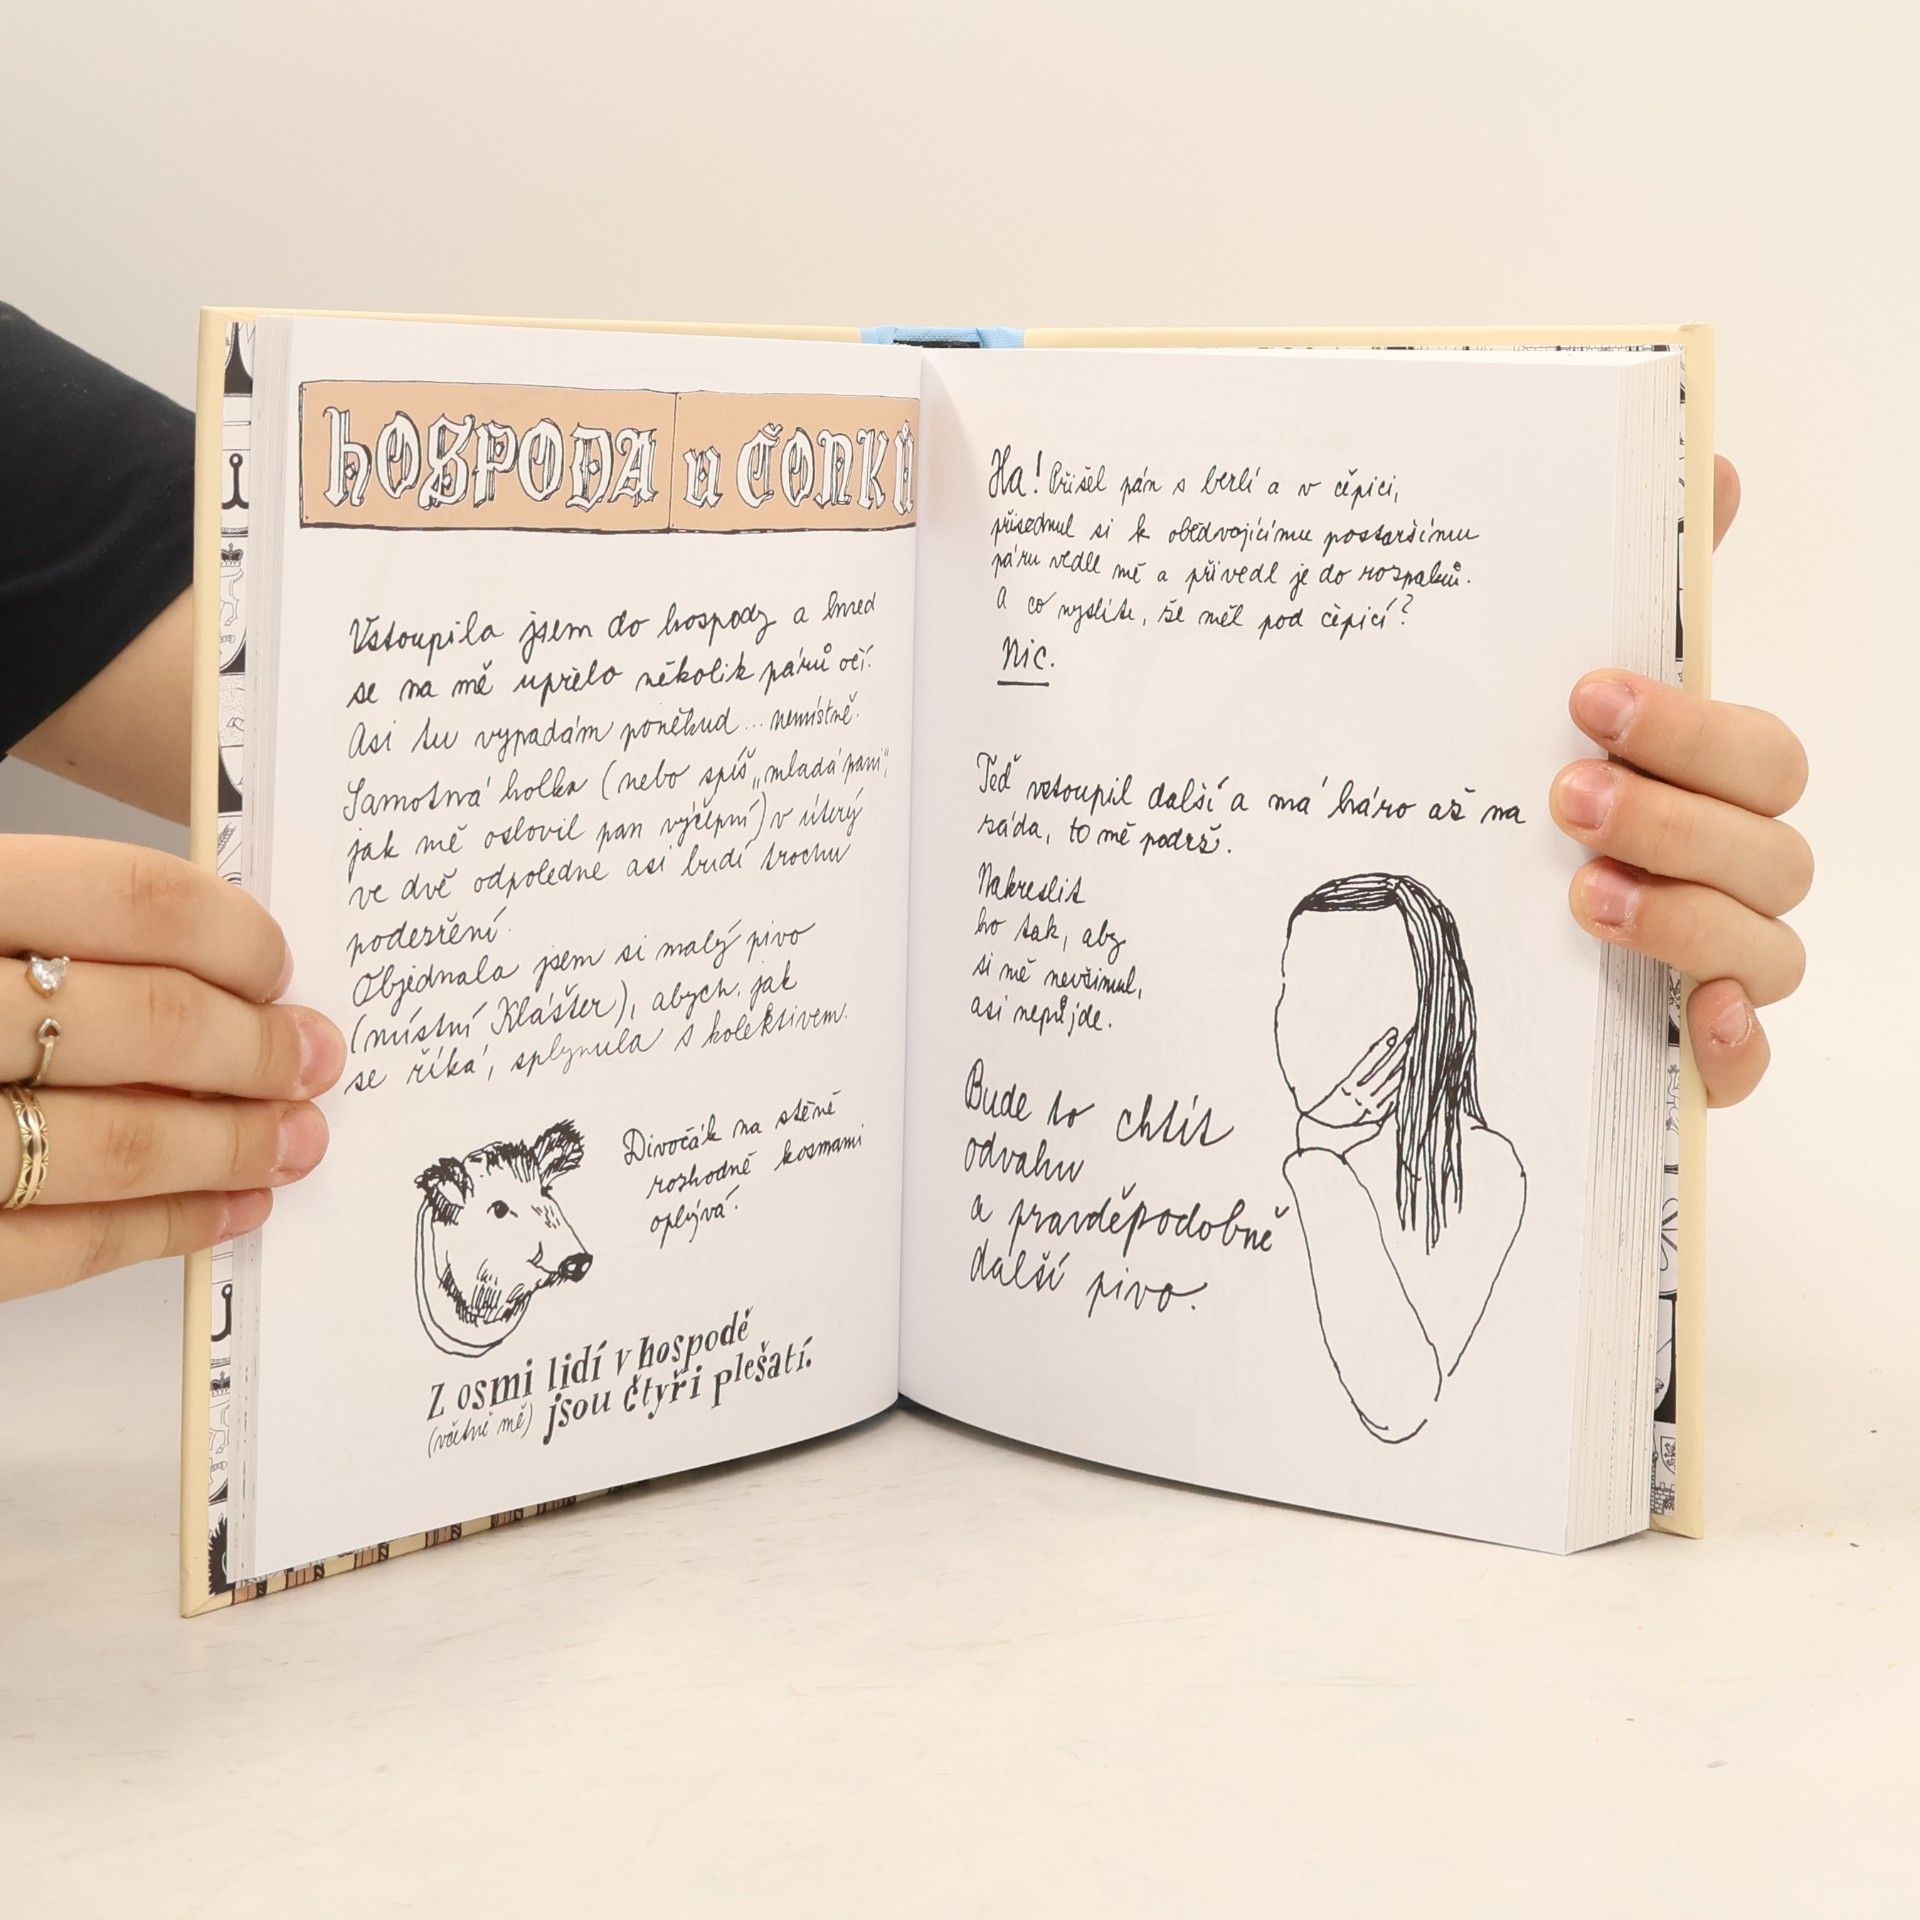 HOSPODA u ČONKŮ
Vstoupila jsem do hospody a hned
se na mě upřelo několik párů očí.
Asi tu vypadám poněkud... nemístně.
Samotná holka (nebo spíš „mladá paní",
jak mě oslovil pan výčepní) v úterý
ve dvě odpoledne asi budí trochu
podezření.
Objednala jsem si malý pivo
(místní Klášter), abych, jak
se říká, splynula s kolektivem.
Divočák na stěně
rozhodně kosmami
oplývá.
Z osmi lidí v hospodě
(včetně mě) jsou čtyři plešatí.
Ha! Přišel pán s berlí a v čepici,
přisednul si k obědvajícímu postaršímu
páru vedle mě a přivedl je do rozpaků.
A co myslíte, že měl pod čepicí?
Nic.
Teď vstoupil další a má háro až na
záda, to mě podrž.
Nakreslit
ho tak, aby
si mě nevšimul,
asi nepůjde.
Bude to chtít
odvahu
a pravděpodobně
další pivo.